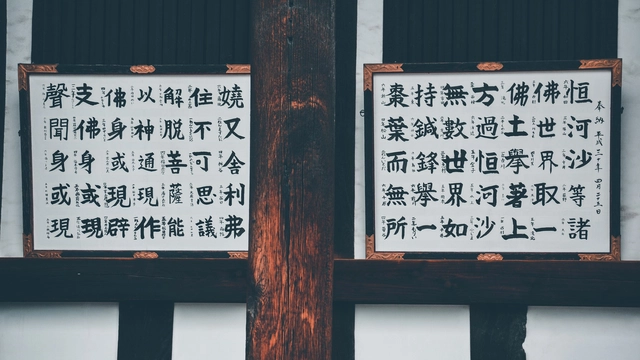 奉納 平成三十年
恒河沙等諸
佛世界取一
佛土擧著上
方過恒河沙
無數世界如
持鍼鋒擧一
棗葉而無所
嬈又舍利弗
住不可思議
解脱菩薩能
以神通現作
佛身或現辟
支佛身或現
聲聞身或現